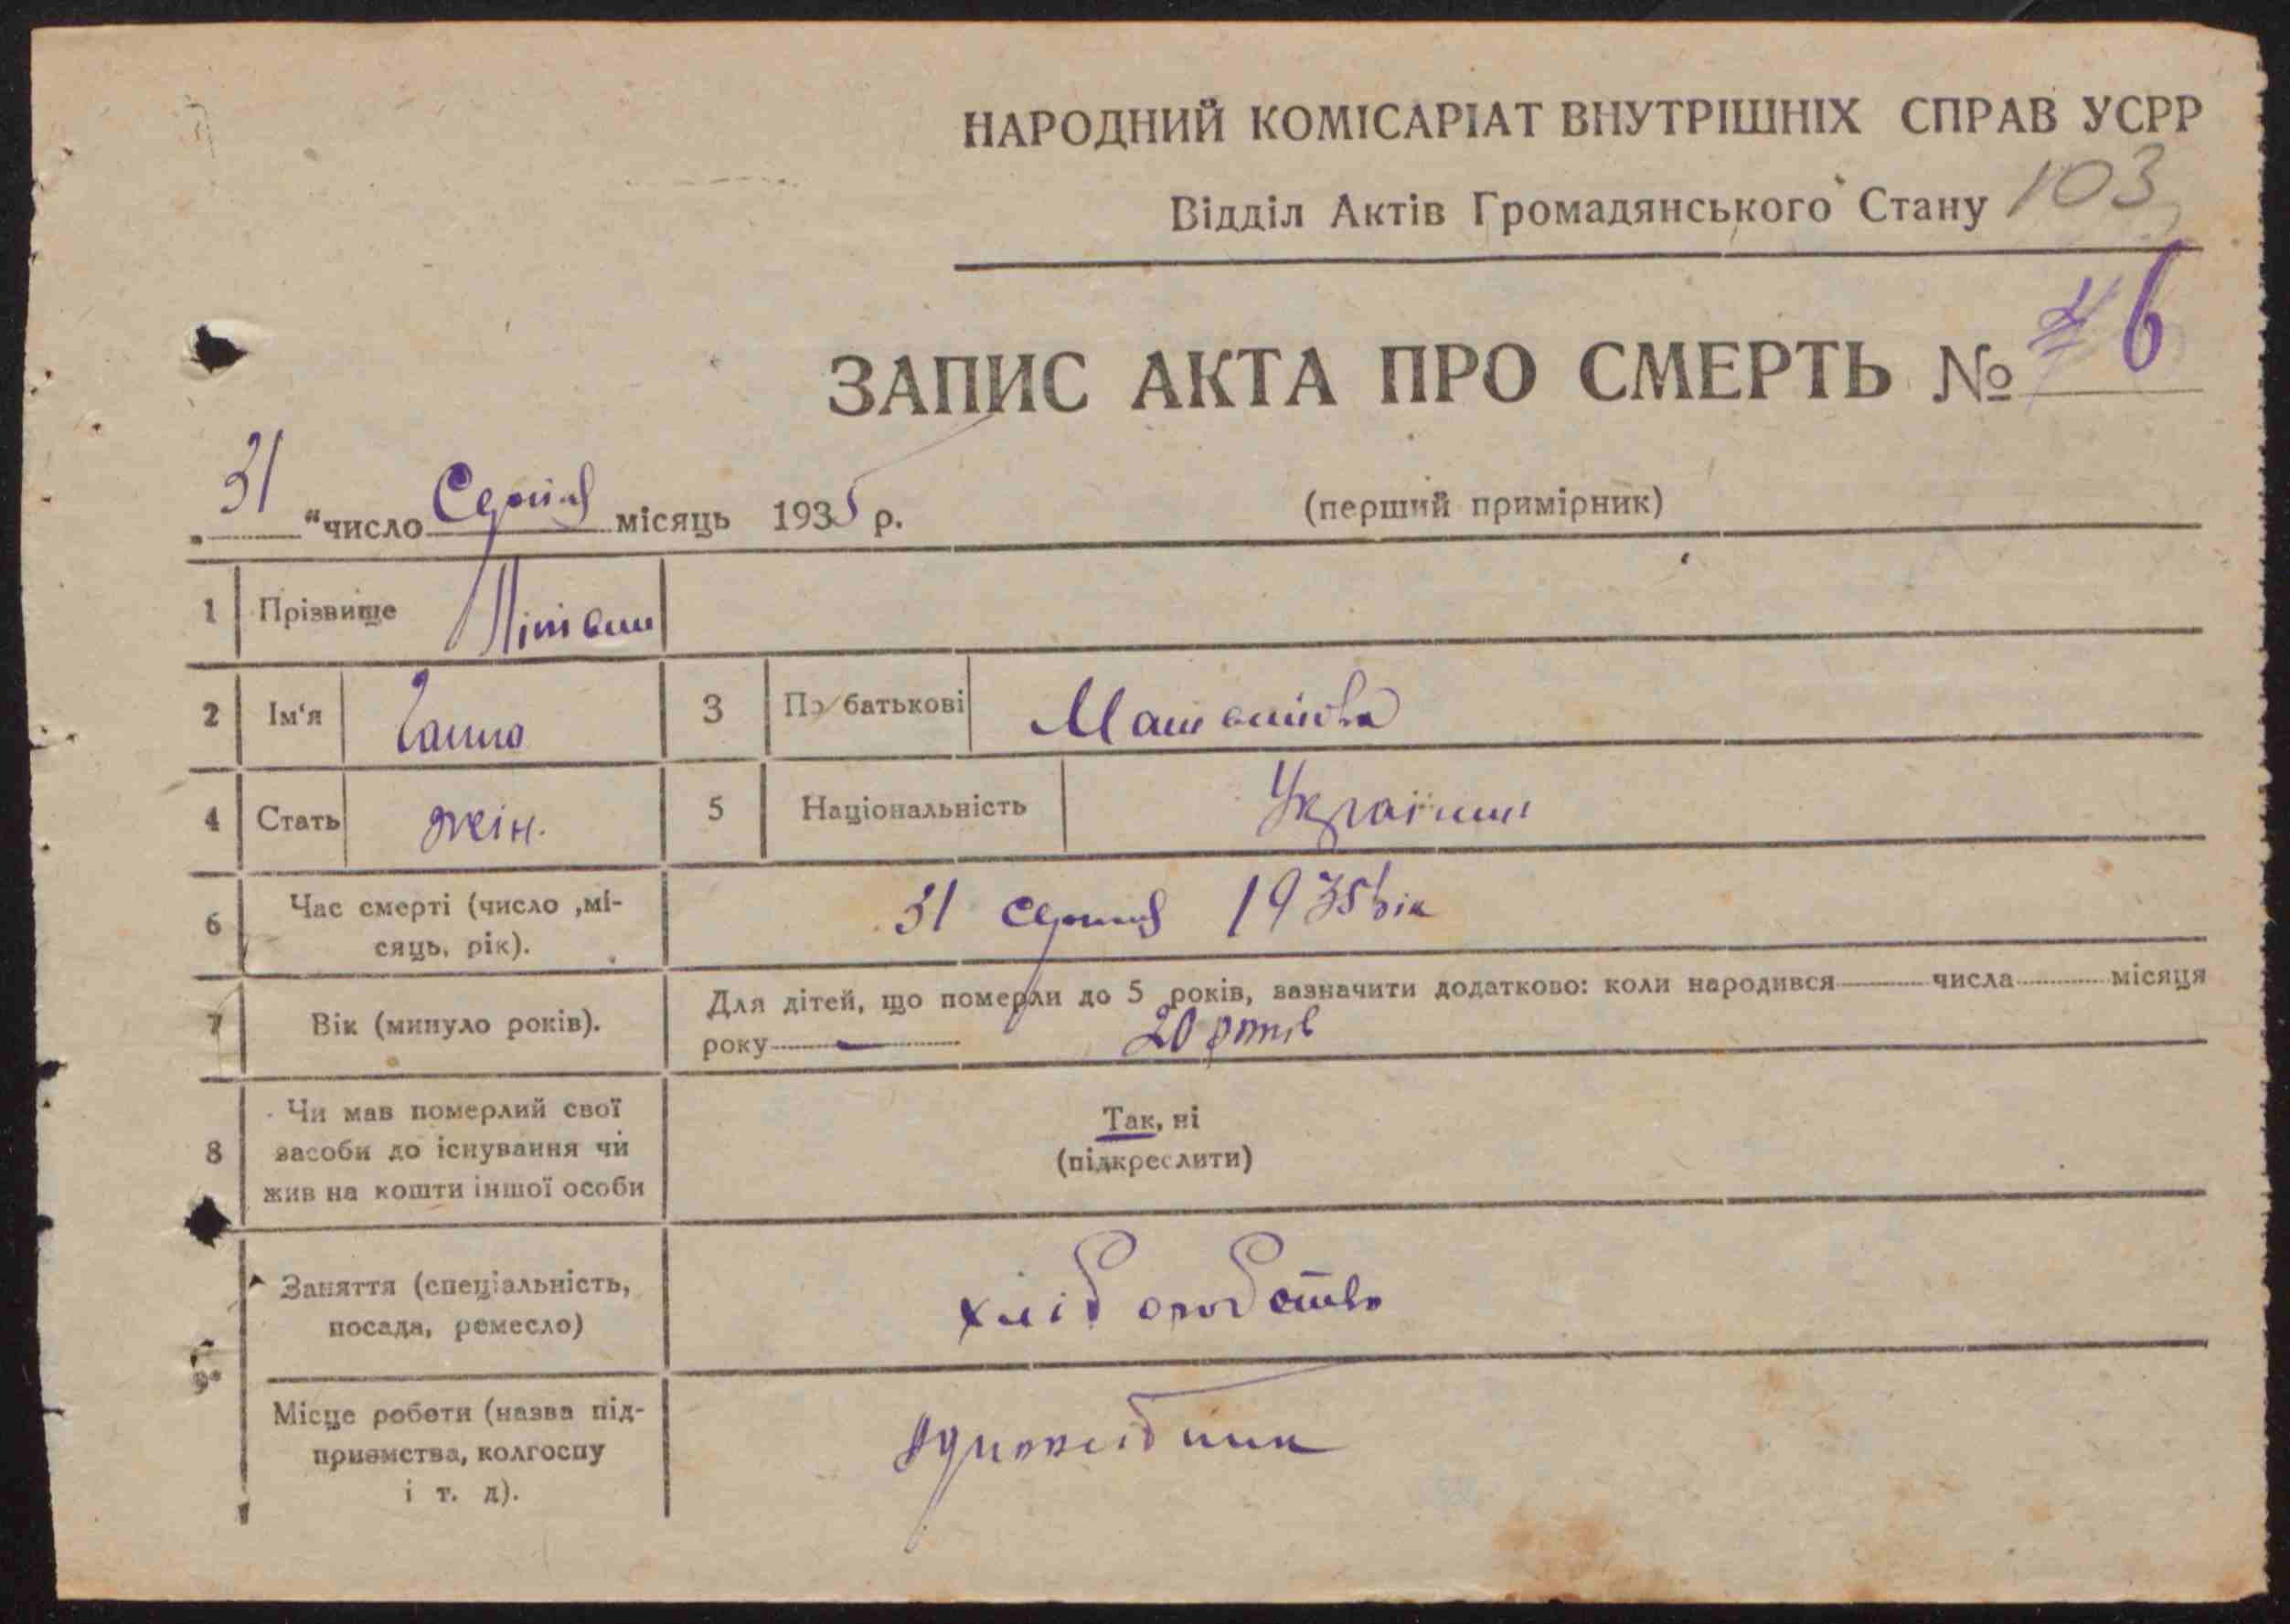 НАРОДНИЙ КОМІСАРІАТ ВНУТРІШНІХ СПРАВ УСРР
Відділ Актів Громадянського Стану 103
ЗАПИС АКТА ПРО СМЕРТЬ № 6
31 “число Серпня місяць 1935 р.
(перший примірник)
1 Прізвище
2 Ім‘я Ганна 3 По батькові
4 Стать жін. 5 Національність
6 Час смерті (число ,мі-
сяць, рік).
31 серпня 1935 рік
7 Вік (минуло років).
Для дітей, що померли до 5 років, зазначити додатково: коли народився числа місяця
року 20 років
8 Чи мав померлий свої
засоби до існування чи
жив на кошти іншої особи
Так, ні
(підкреслити)
9 Заняття (спеціальність,
посада, ремесло)
хліборобство
Місце роботи (назва під-
приємства, колгоспу
і т. д).